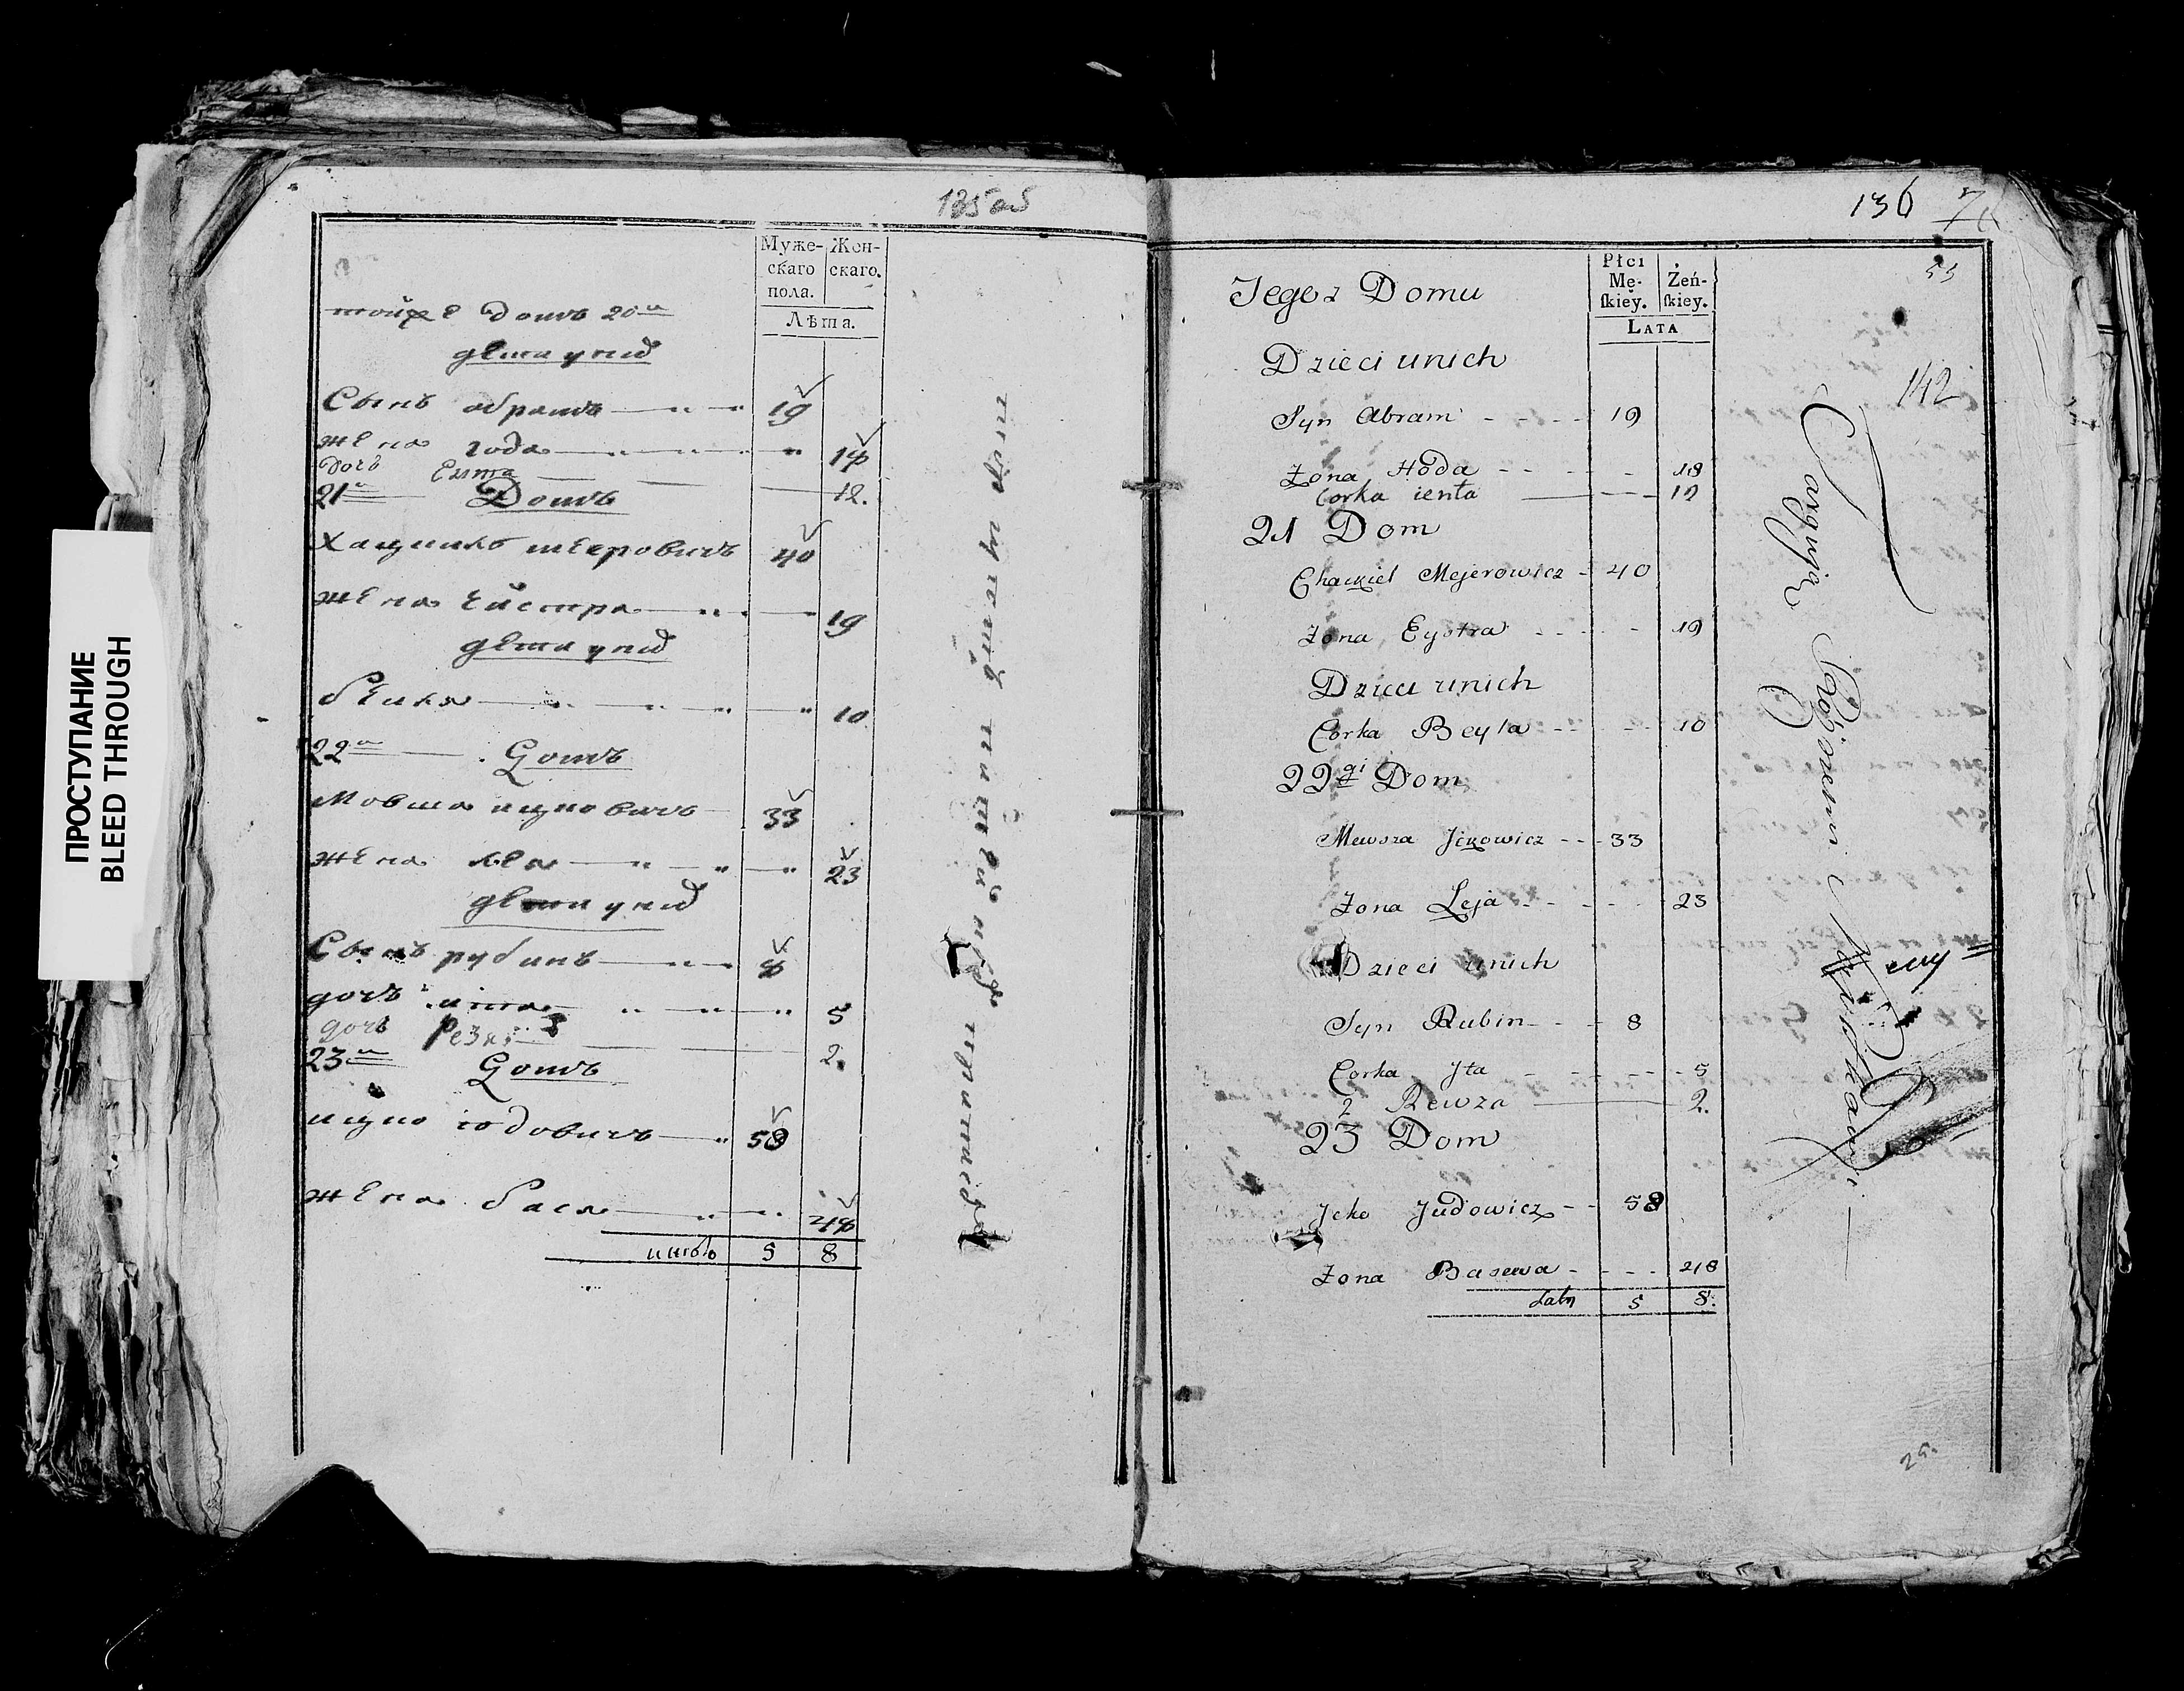 ПРОСТУПАНИЕ
BLEED THROUGH
135об
Муже-
скаго
пола.
Жен-
скаго.
Лѣта.
тойже Домъ 20й
дети унид
Сынъ абрамъ 19
жена года 18
дочь Ента 12.
21й Домъ
Хацкиль меровичъ 40
жена Ейстра 19
дети унид
беила 10
22й Домъ
Мовша ицковичъ 33
жена леа 23
дети унид
Сынъ рубинъ 8
дочь ита 5
дочь 2.
23й Домъ
ицко юдовичъ 58
жена бася 48
итого 5 8
136
55
142
Płci
Mę-
ſkiey.
Żeń-
ſkiey.
LATA
Jegoz Domu
Dzieci unich
Syn Abram 19
Zona Hoda 18
Corka ienta 12
21 Dom
Chackiel Mejerowicz 40
Zona Eystra 19
Dzieci unich
Corka Beyla 10
22gi Dom
Mewsza Jckowicz 33
Zona Leja 23
Dzieci unich
Syn Rubin 8
Corka Jta 5
2 Rewza 2.
23 Dom
Jcko Judowicz 58
Zona Basewa 48
Latus 5 8.